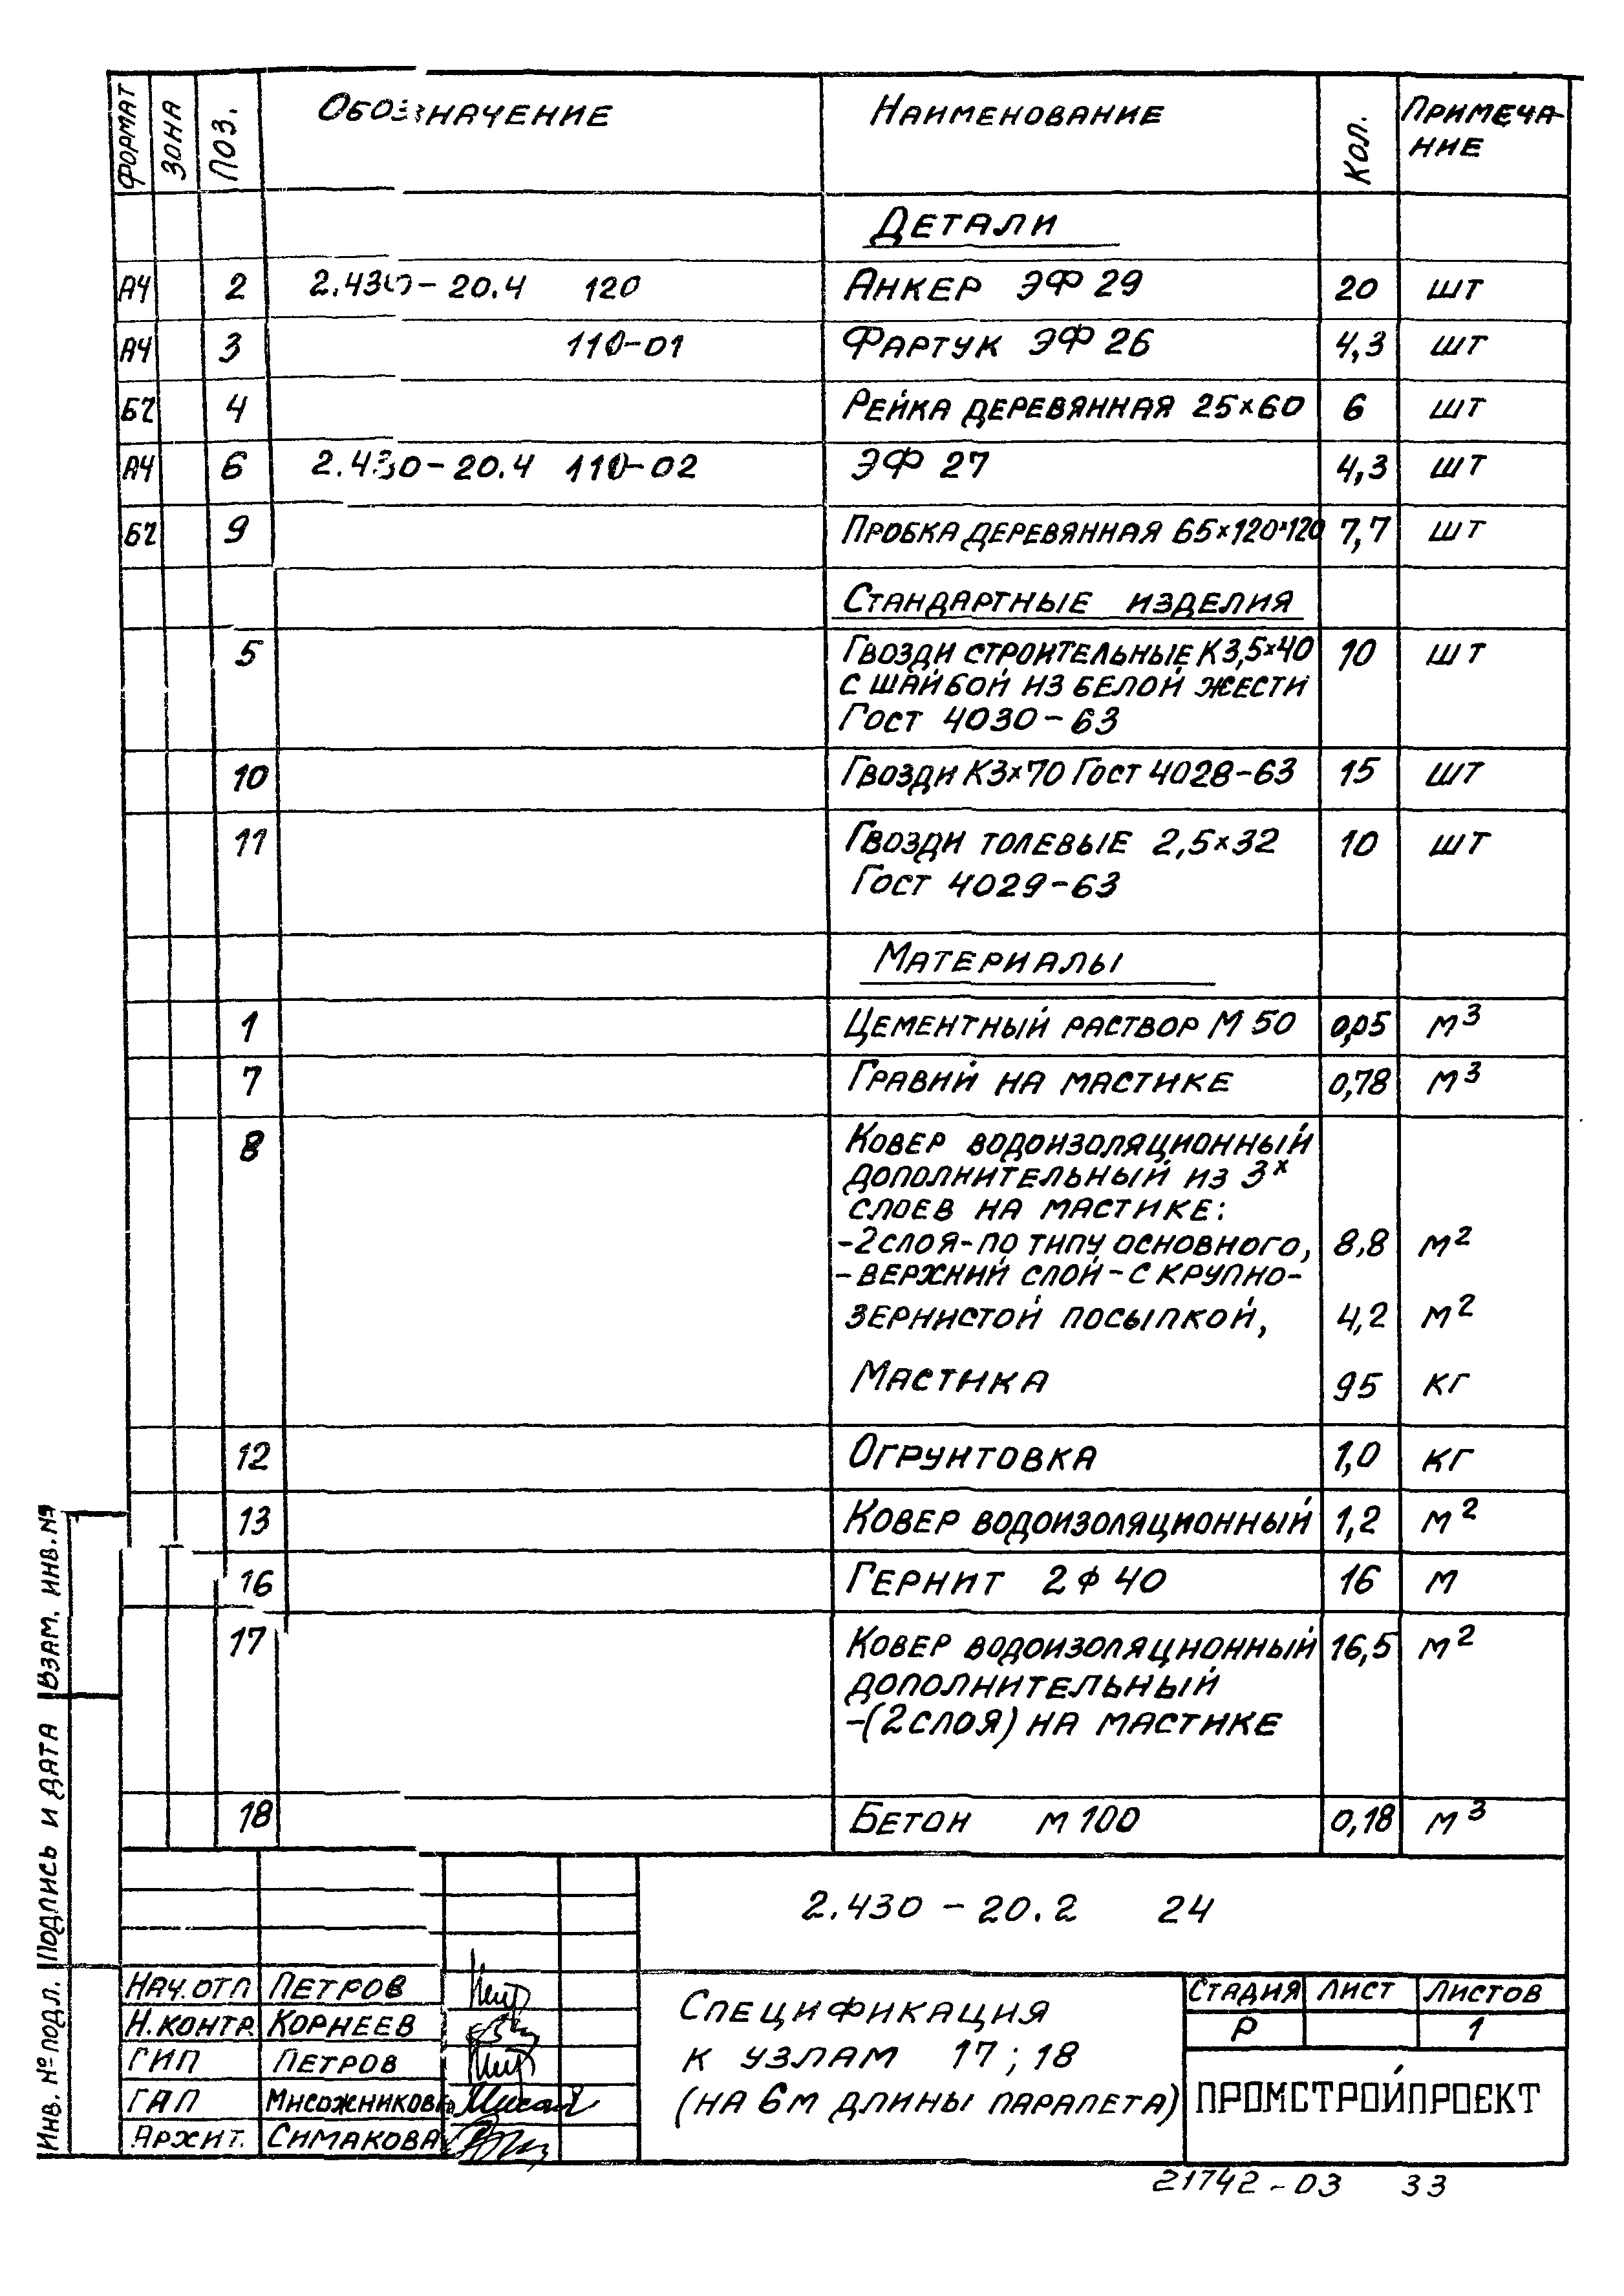 Формат Зона Поз. Обозначение Наименование Кол. Примеча-
ние
Детали
А4 2 2.430-20.4 120 Анкер ЭФ 29 20 шт
А4 3 110-01 Фартук ЭФ 26 4,3 шт
БЧ 4 Рейка деревянная 25×60 6 шт
А4 6 2.430-20.4 110-02 ЭФ 27 4,3 шт
БЧ 9 Пробка деревянная 65×120×120 7,7 шт
Стандартные изделия
5 Гвозди строительные К3,5×40 10 шт
с шайбой из белой жести
Гост 4030-63
10 Гвозди К3×70 Гост 4028-63 15 шт
11 Гвозди толевые 2,5×32 10 шт
Гост 4029-63
Материалы
1 Цементный раствор М 50 0,05 м³
7 Гравий на мастике 0,78 м³
8 Ковер водоизоляционный
дополнительный из 3х
слоев на мастике:
-2 слоя-по типу основного, 8,8 м²
-верхний слой-с крупно-
зернистой посыпкой, 4,2 м²
Мастика 95 кг
12 Огрунтовка 1,0 кг
13 Ковер водоизоляционный 1,2 м²
16 Гернит 2ф40 16 м
17 Ковер водоизоляционный 16,5 м²
дополнительный
-(2 слоя) на мастике
18 Бетон м 100 0,18 м³
2.430-20.2 24
Нач. отп Петров
Н. контр. Корнеев
ГИП Петров
ГАП Мнсожникова
Архит. Симакова
Спецификация
к узлам 17; 18
(на 6м длины парапета)
Стадия Лист Листов
Р 1
ПРОМСТРОЙПРОЕКТ
Инв. № подл. Подпись и дата Взам. инв. №
21742-03 33